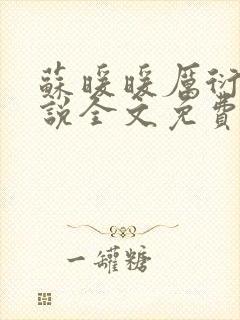 蘇暖暖厲衍
說全文免費
一罐糖